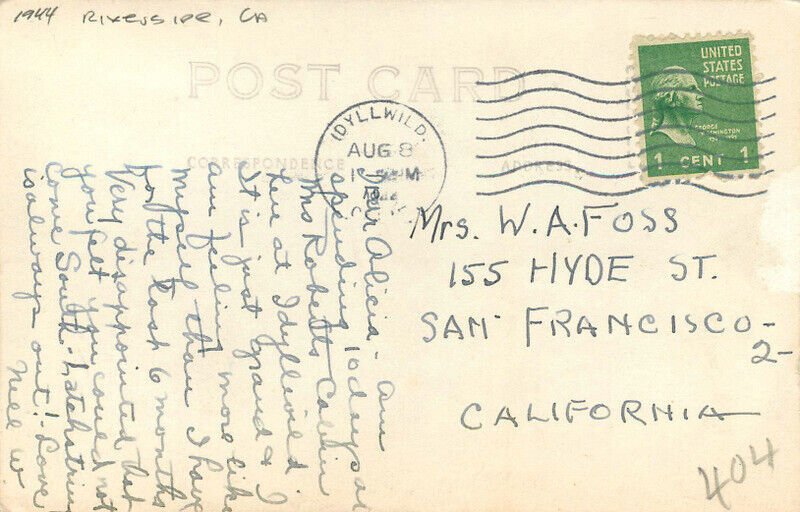 1944 RIVERSIDE, CA
POST CARD
CORRESPONDENCE
ADDRESS
IDYLLWILD.
AUG 8
M
UNITED
STATES
POSTAGE
GEORGE
WASHINGTON
1 CENT 1
Dear Alicia - Am
spending 10 days at
Mrs Roberts Cabin
here at Idyllwild.
It is just grand & I
am feeling more like
myself than I have
for the last 6 months
Very disappointed that
you felt you could not
come South - Latchstring
is always out! - Love
Nell W
Mrs. W. A. FOSS
155 HYDE ST.
SAN FRANCISCO -
2 -
CALIFORNIA
404